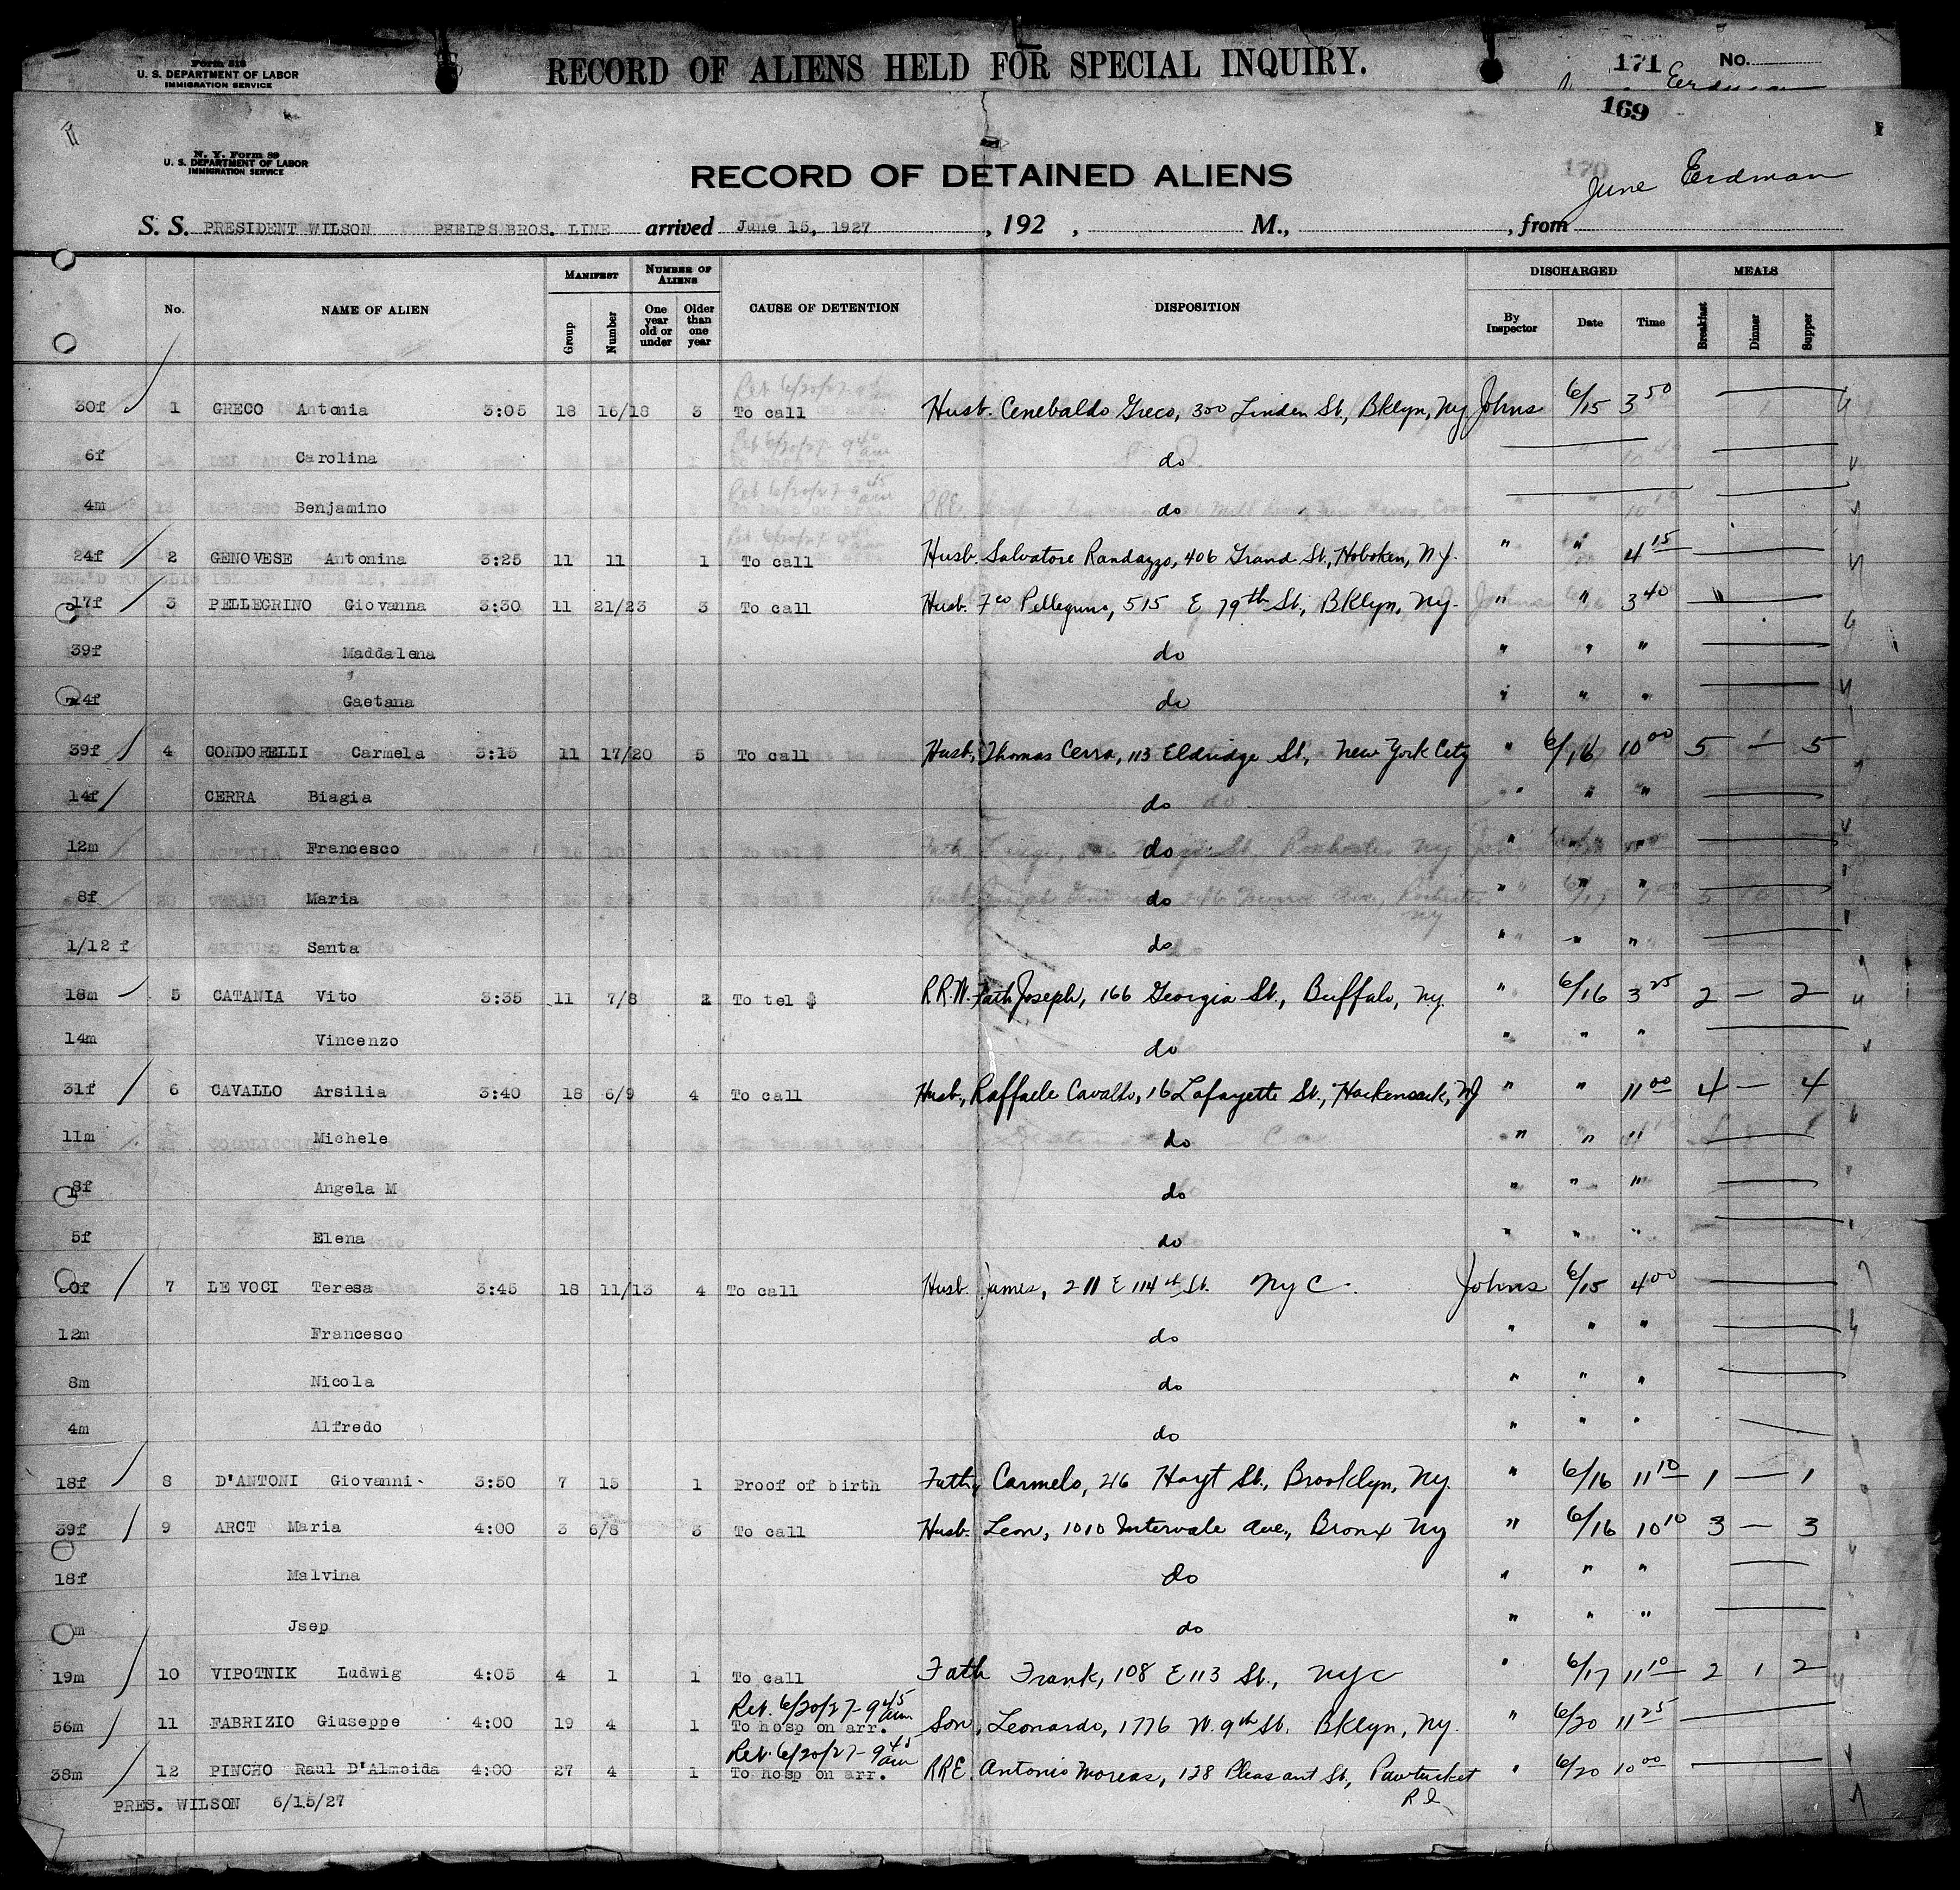 Form 518
U. S. DEPARTMENT OF LABOR
IMMIGRATION SERVICE
RECORD OF ALIENS HELD FOR SPECIAL INQUIRY.
171 No.
Erdman
169
N. Y. Form 89
U. S. DEPARTMENT OF LABOR
IMMIGRATION SERVICE
RECORD OF DETAINED ALIENS
170
June Erdman
S. S. PRESIDENT WILSON PHELPS BROS. LINE arrived June 15, 1927, 192 , M., , from
No. NAME OF ALIEN MANIFEST Group Number NUMBER OF ALIENS One year old or under Older than one year CAUSE OF DETENTION DISPOSITION DISCHARGED By Inspector Date Time MEALS Breakfast Dinner Supper
30f 1 GRECO Antonia 3:05 18 16/18 3 To call Husb. Cenebaldo Greco, 300 Linden St., Bklyn, Ny Johns 6/15 3 50
6f Carolina do
4m Benjamino do
24f 2 GENOVESE Antonina 3:25 11 11 1 To call Husb. Salvatore Randazzo, 406 Grand St., Hoboken, N.J. " " 4 15
17f 3 PELLEGRINO Giovanna 3:30 11 21/23 3 To call Husb. Fco Pellegrino, 515 E 79th St., BKlyn, Ny. " " 3 40
39f Maddalena do " " "
4f Gaetana do " " "
39f 4 CONDORELLI Carmela 3:15 11 17/20 5 To call Husb, Thomas Cerra, 113 Eldridge St., New York City " 6/16 10 00 5 — 5
14f CERRA Biagia do " " "
12m Francesco do " " "
8f Maria do " " "
1/12 f Santa do " " "
18m 5 CATANIA Vito 3:35 11 7/8 2 To tel $ R.R.W. Fath Joseph, 166 Georgia St., Buffalo, Ny. " 6/16 3 25 2 — 2
14m Vincenzo do " " "
31f 6 CAVALLO Arsilia 3:40 18 6/9 4 To call Husb, Raffaele Cavallo, 16 Lafayette St., Hackensack, NJ " " 11 00 4 — 4
11m Michele do " " "
8f Angela M do " " "
5f Elena do " " "
0f 7 LE VOCI Teresa 3:45 18 11/13 4 To call Husb. James, 211 E 114th St. NyC. Johns 6/15 4 00
12m Francesco do " " "
8m Nicola do " " "
4m Alfredo do " " "
18f 8 D'ANTONI Giovanni 3:50 7 15 1 Proof of birth Fath, Carmelo, 216 Hoyt St., Brooklyn, Ny. " 6/16 11 10 1 — 1
39f 9 ARCT Maria 4:00 3 6/8 3 To call Husb. Leon, 1010 Intervale Ave., Bronx Ny " 6/16 10 10 3 — 3
18f Malvina do " " "
m Jsep do " " "
19m 10 VIPOTNIK Ludwig 4:05 4 1 1 To call Fath Frank, 108 E 113 St., NyC " 6/17 11 10 2 1 2
Ret. 6/20/27 - 9 45 am
56m 11 FABRIZIO Giuseppe 4:00 19 4 1 To hosp on arr. Son, Leonardo, 1776 W. 9th St. Bklyn, Ny. " 6/20 11 25
Ret. 6/20/27 - 9 45 am
38m 12 PINCHO Raul D'Almeida 4:00 27 4 1 To hosp on arr. RRE. Antonio Moreas, 128 Pleasant St., Pawtucket " 6/20 10 00
R I
PRES. WILSON 6/15/27